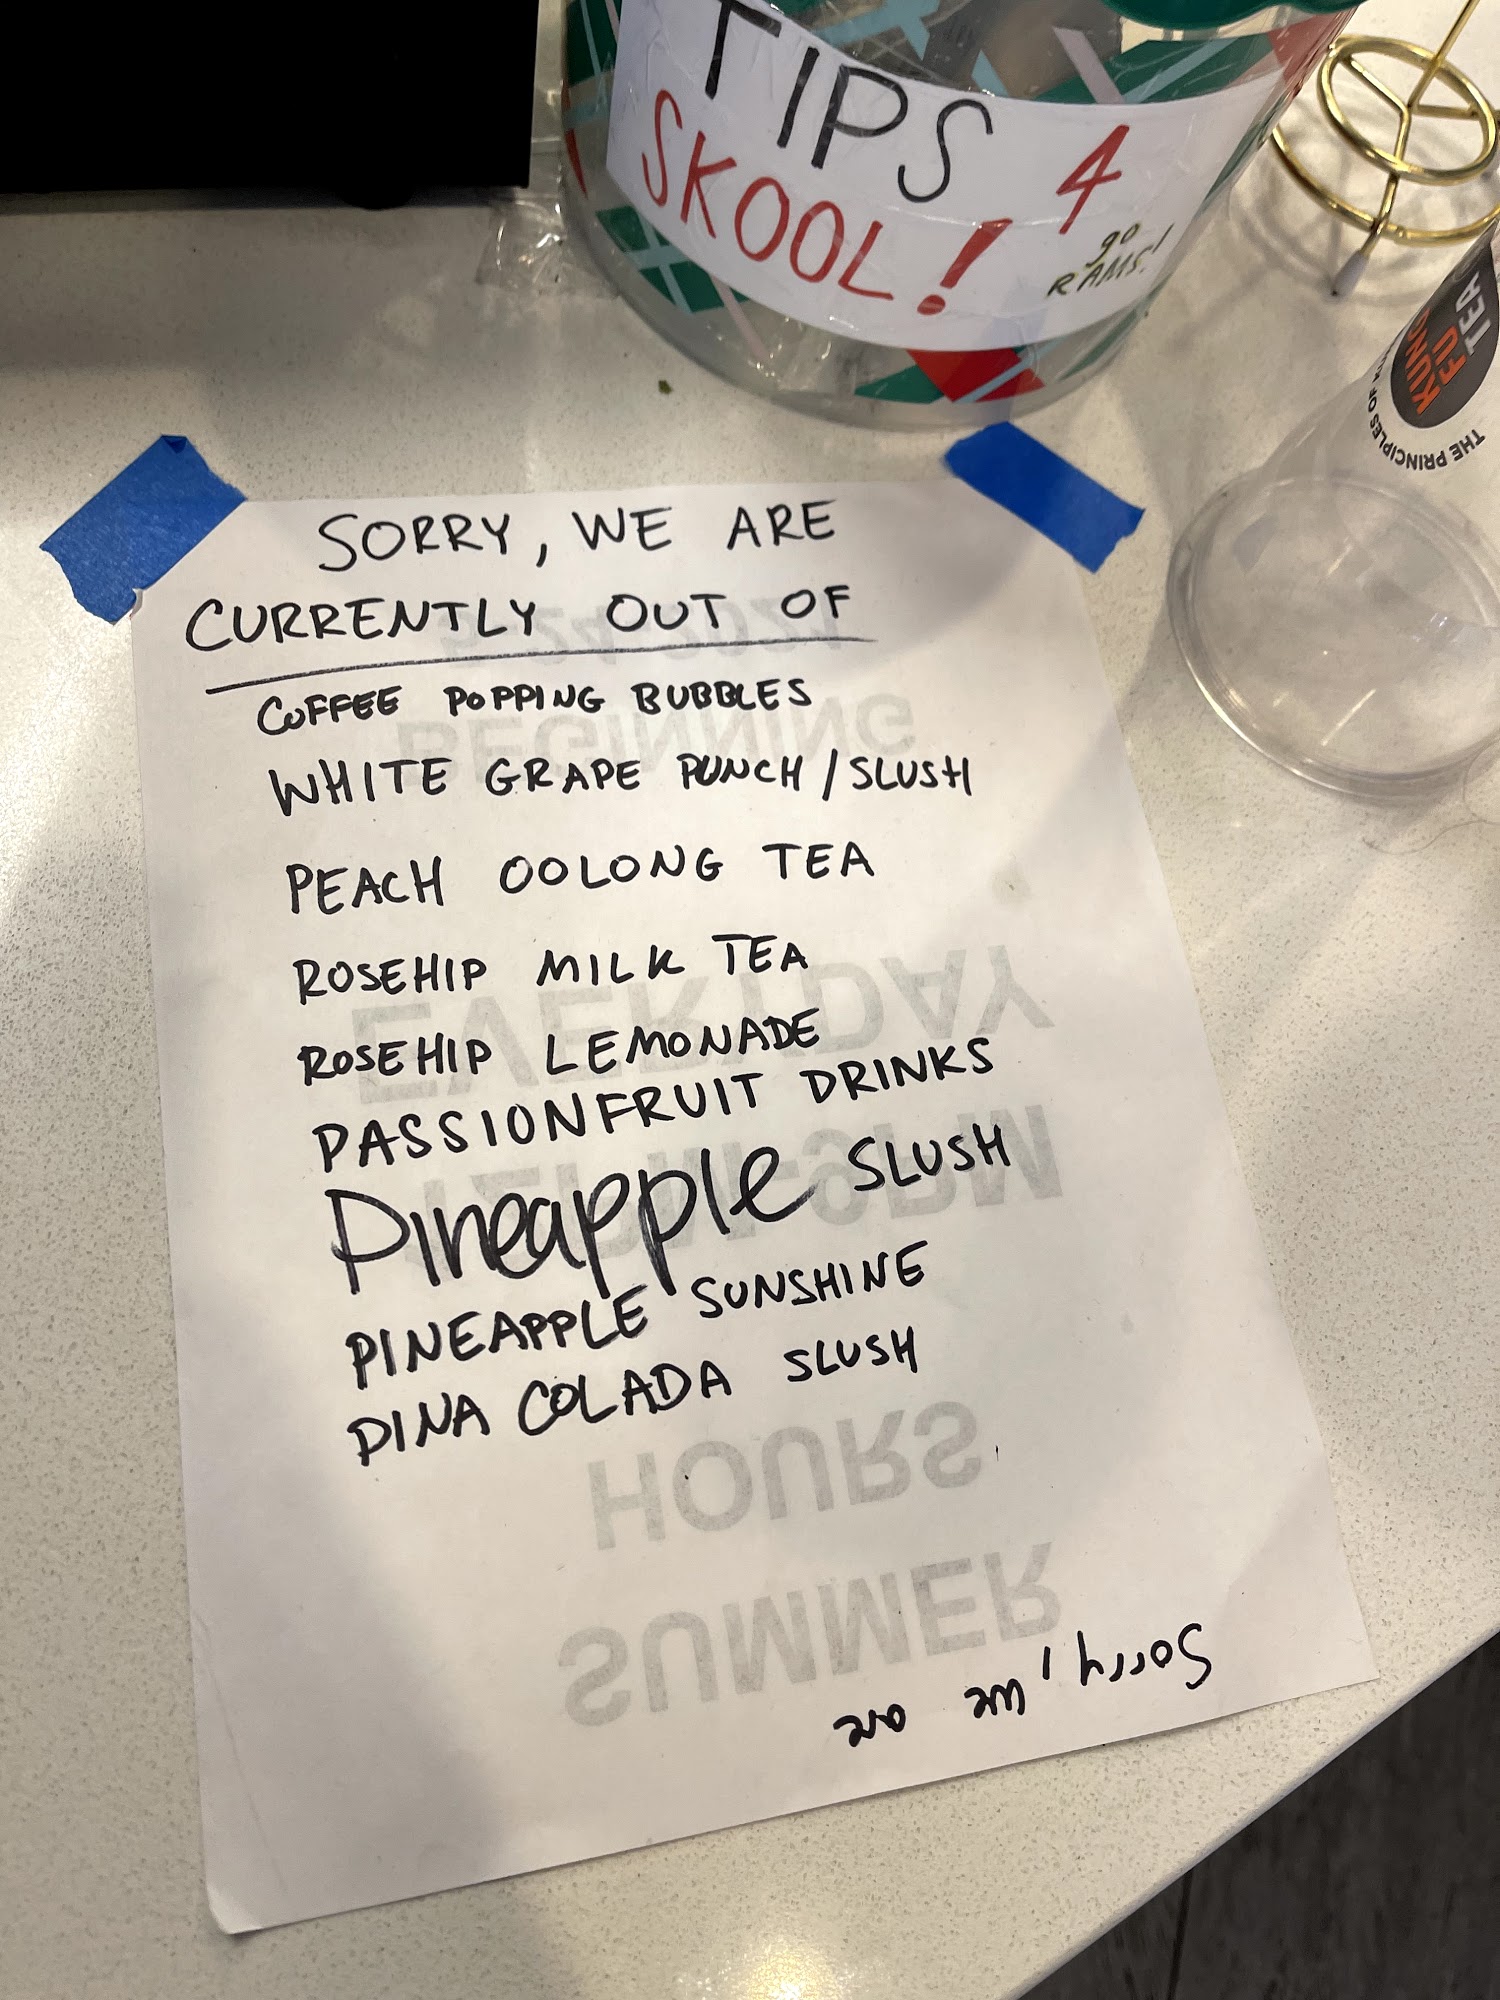 TIPS 4
SKOOL!
go
RAMS!
KUNG
FU
TEA
THE PRINCIPLES OF
SORRY, WE ARE
CURRENTLY OUT OF
COFFEE POPPING BUBBLES
WHITE GRAPE PUNCH/SLUSH
PEACH OOLONG TEA
ROSEHIP MILK TEA
ROSEHIP LEMONADE
PASSIONFRUIT DRINKS
Pineapple SLUSH
PINEAPPLE SUNSHINE
PINA COLADA SLUSH
Sorry, we are
SUMMER
HOURS
12PM-9PM
EVERYDAY
BEGINNING